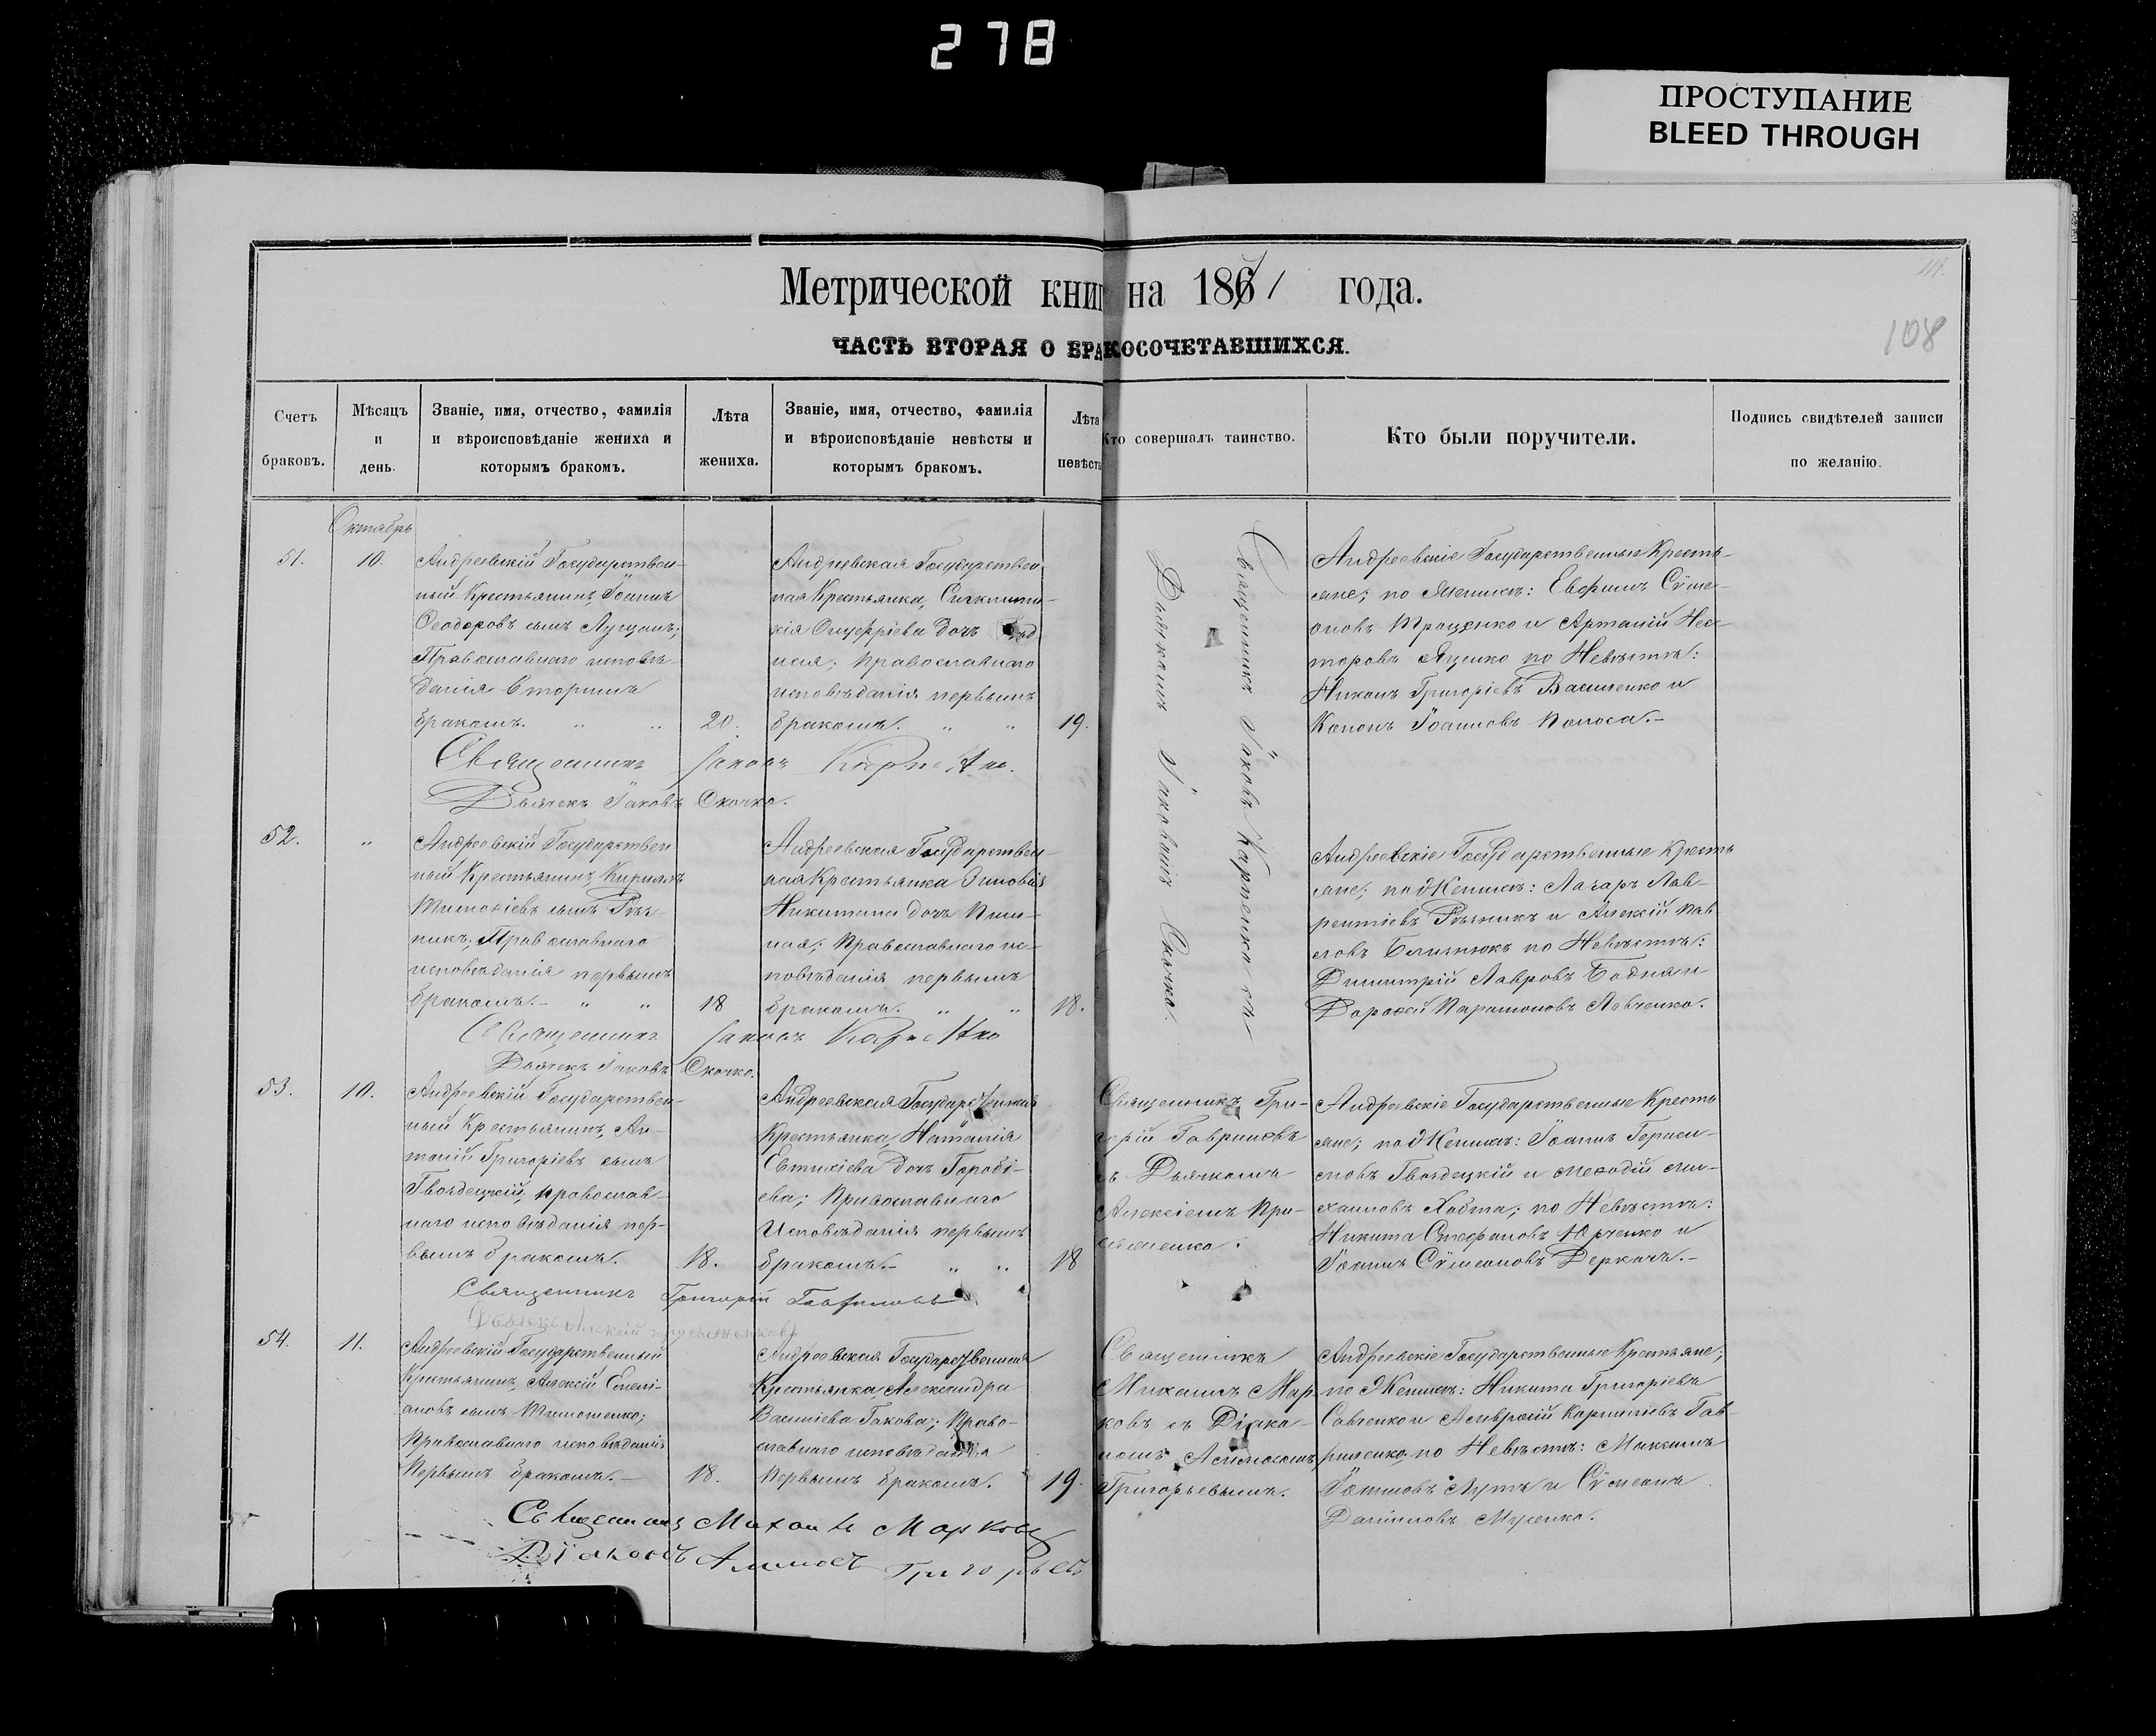 278
ПРОСТУПАНИЕ
BLEED THROUGH
Метрической книг на 1871 года.
108
ЧАСТЬ ВТОРАЯ О БРАКОСОЧЕТАВШИХСЯ.
Счетъ браковъ.
Мѣсяцъ и день.
Званіе, имя, отчество, фамилія
и вѣроисповѣданіе жениха и
которымъ бракомъ.
Лѣта жениха.
Званіе, имя, отчество, фамилія
и вѣроисповѣданіе невѣсты и
которымъ бракомъ.
Лѣта невѣсты
Кто совершалъ таинство.
Кто были поручители.
Подпись свидѣтелей записи
по желанію.
Октябрь
51.
10.
Андреевскій Государствен-
ный Крестьянинъ, Іоаннъ
Ѳеодоровъ сынъ Лущанъ;
Православнаго исповѣ-
данія вторымъ
бракомъ. " "
20.
Андреевская Государствен
ная Крестьянка,
Онуфріева дочь
ная; православнаго
исповѣданія первымъ
бракомъ. " "
19.
Священникъ Іаковъ Карпенко съ
Дьячкомъ Іаковомъ Скочко.
Андреевскіе Государственные Кресть-
яне; по Женихѣ: Евфимъ Сѵме-
оновъ Троценко и Артемій Нес-
торовъ Яценко по Невѣстѣ:
Никонъ Григоріевъ Василенко и
Кононъ Іоанновъ Полоса.-
Священникъ Іаковъ Карпенко.
Дьячекъ Іаковъ Скочко.
52.
"
Андреевскій Государствен
ный Крестьянинъ, Кириллъ
Тимоѳіевъ сынъ Рѣз-
никъ; Православнаго
исповѣданія первымъ
бракомъ.- " "
18
Андреевская Государствен-
ная Крестьянка Зиновія
Никитина дочь
ная; Православнаго ис-
повѣданія первымъ
бракомъ. " "
18.
Андреевскіе Государственные Кресть
яне; по Женихѣ: Лазарь Лав-
рентіевъ Рѣзникъ и Алексій Пав
ловъ Близнюкъ по Невѣстѣ:
Димитрій Лавровъ Бодня и
Дороѳей Парамоновъ Левченко.
Священникъ Іаковъ Карпенко
Дьячекъ Іаковъ Скочко.
53.
10.
Андреевскій Государствен-
ный Крестьянинъ, Ан-
тоній Григоріевъ сынъ
Гвоздецкій, православ-
наго исповѣданія пер-
вымъ бракомъ.
18.
Андреевская Государственная
Крестьянка, Наталія
Евтихіева дочь Горобі-
ева; Православнаго
Исповѣданія первымъ
бракомъ.- " "
18
Священникъ Гри-
горій Гавриловъ
съ Дьячкомъ
Алексіемъ
Андреевскіе Государственные Кресть
яне; по Женихѣ: Іоаннъ Гераси-
мовъ Гвоздецкій и Меѳодій Ми-
хаиловъ Хобта; по Невѣстѣ:
Никита Стефановъ Юрченко и
Іоаннъ Сѵмеоновъ Деркачъ.-
Священникъ Григорій Гавриловъ
Дьячекъ Алексій
54.
11.
Андреевскій Государственный
Крестьянинъ, Алексій Емелі-
ановъ сынъ Тимошенко;
Православнаго исповѣданія
Первымъ бракомъ.-
18.
Андреевская Государственная
Крестьянка, Александра
Василіева Гакова; Право-
славнаго исповѣданія
первымъ бракомъ.
19.
Священникъ
Михаилъ Мар-
ковъ съ Діако-
номъ
Григорьевымъ.
Андреевскіе Государственные Крестьяне;
по Женихѣ: Никита Григоріевъ
Савченко и Амвросій Корниліевъ Гав
риленко по Невѣстѣ: Максимъ
Іоанновъ Лутъ и Сѵмеонъ
Даніиловъ Мусенко.
Священникъ Михаилъ Марковъ
Діаконъ Григорьевъ